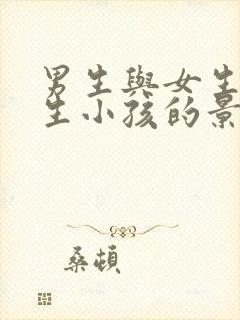 男生與女生
生小孩的景
桑頓